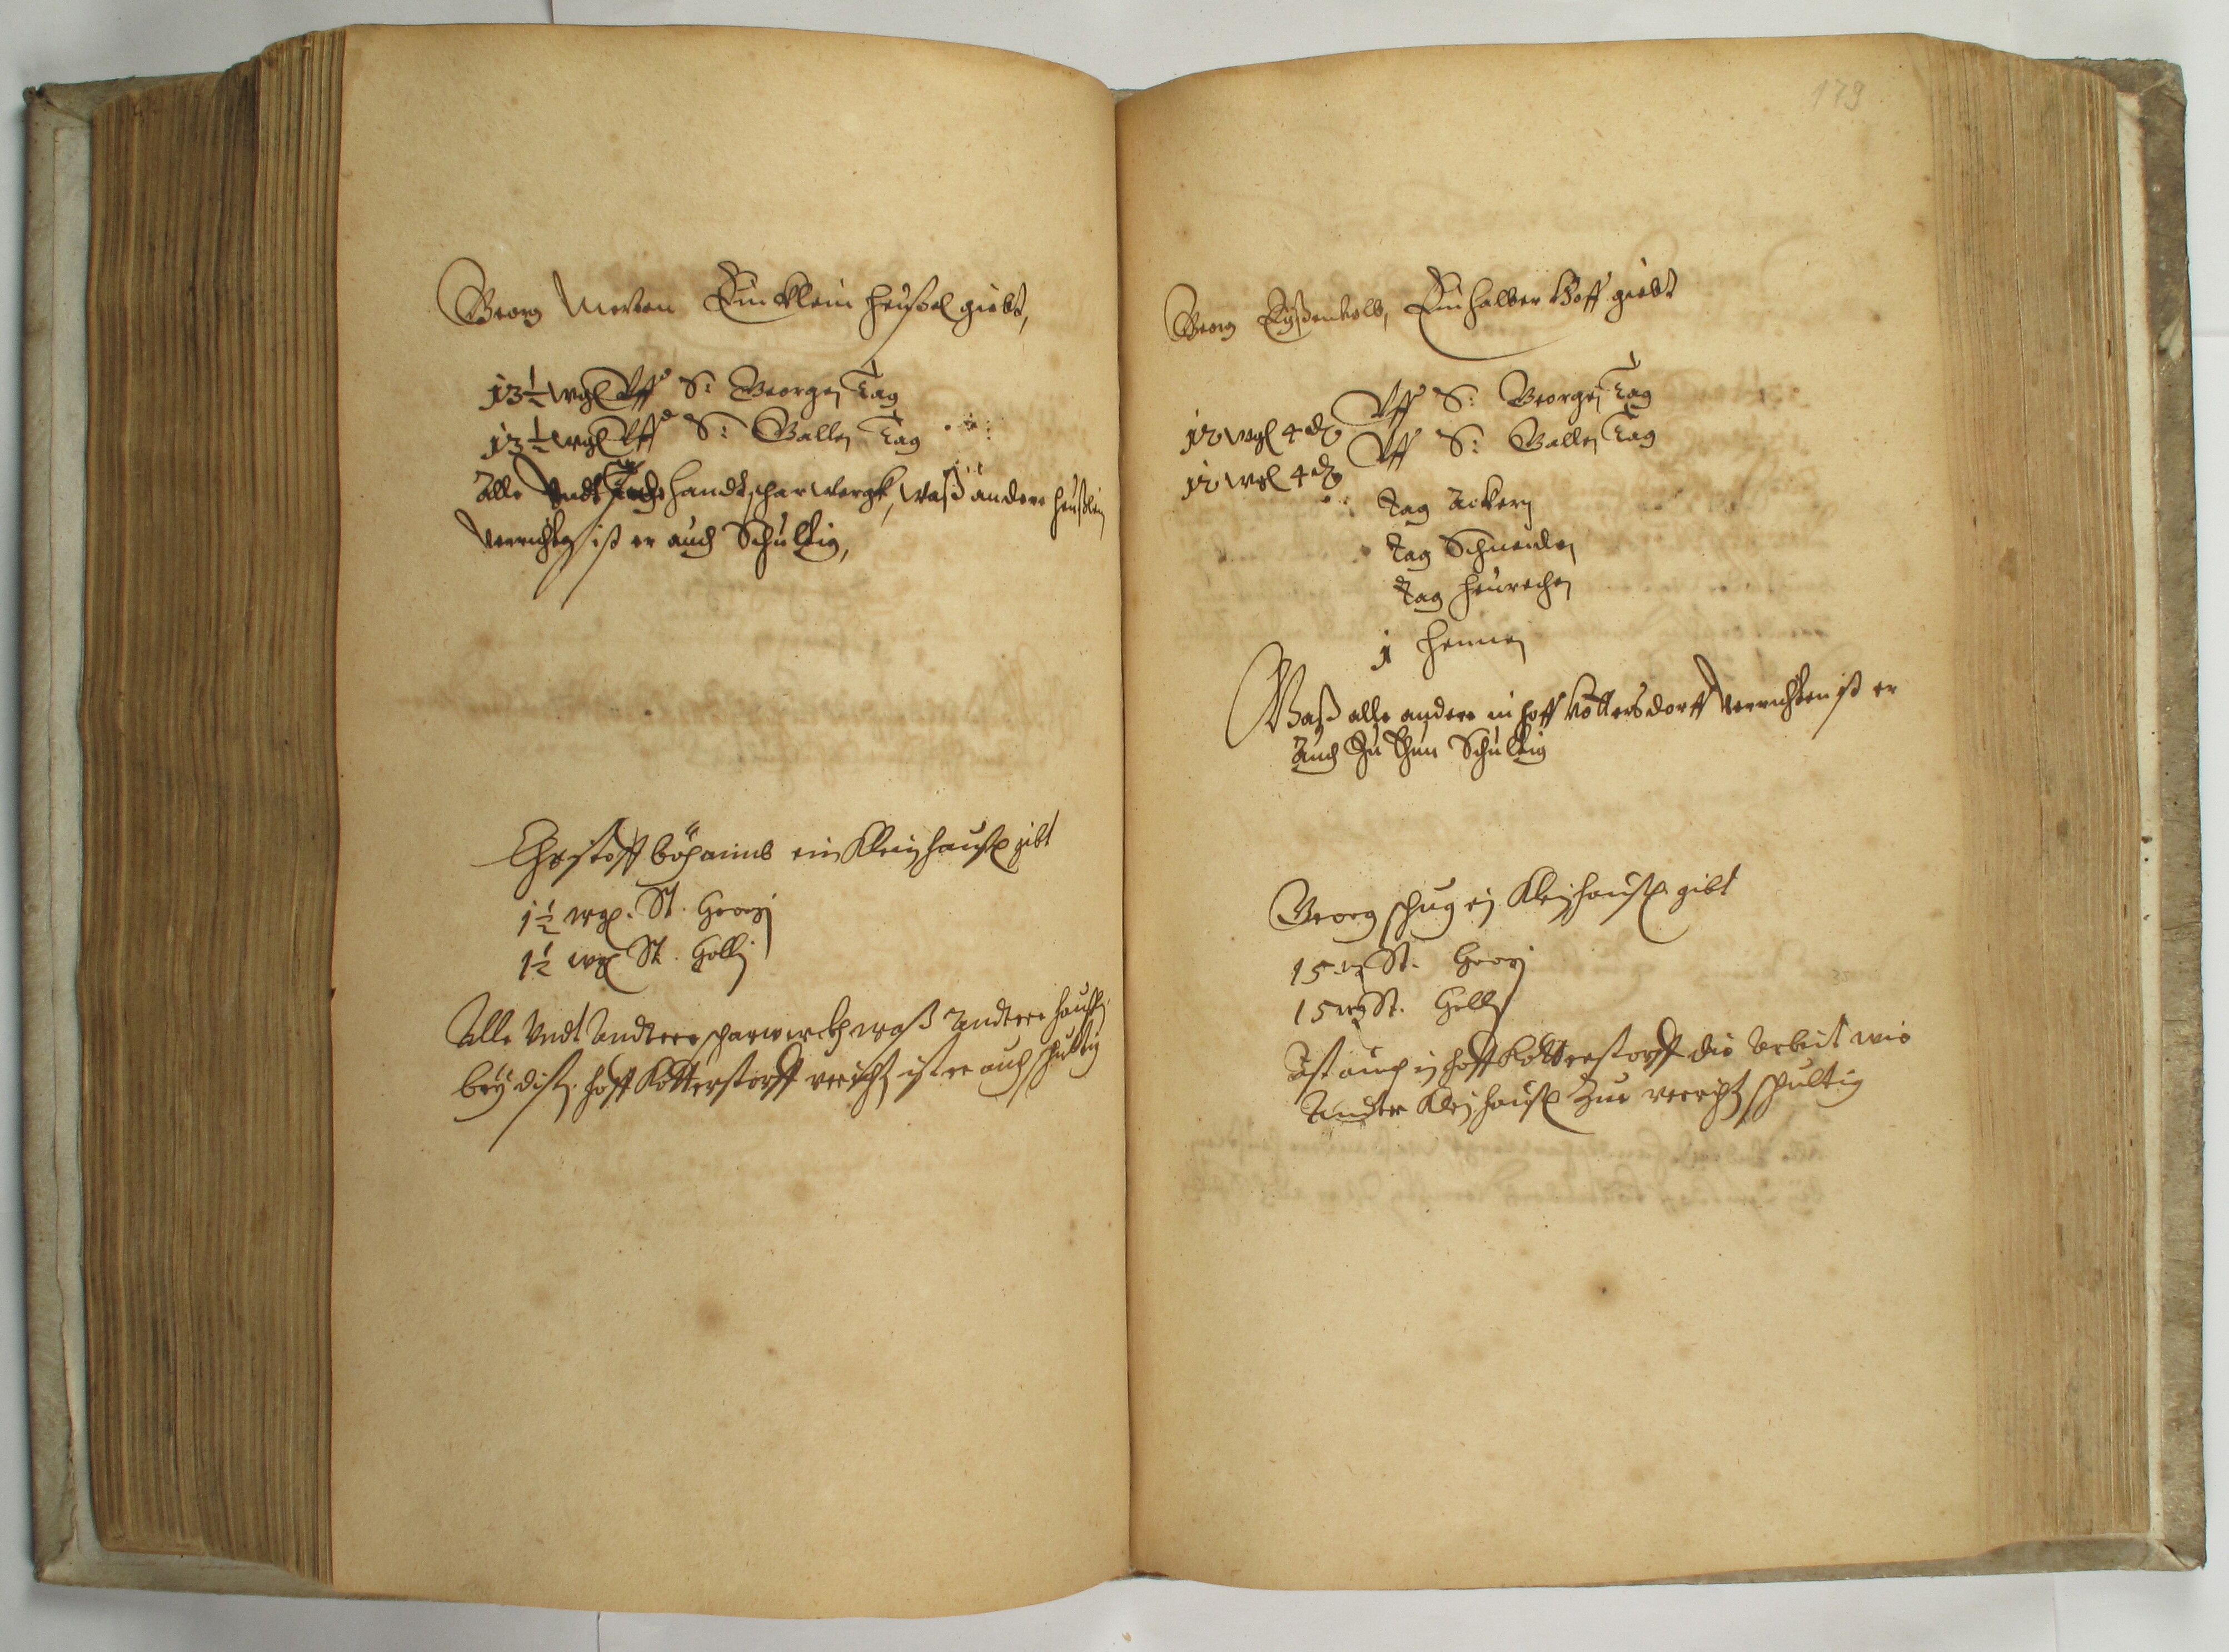 Georg Merten Ein klein heusel giebt,
13½ wgl Uff S: Georgen Tag
13½ wgl Uff S: Gallen Tag
Alle Undt Jede handtscharwergk, waß andere heußlein
verrichten ist er auch Schultig,
Christoff ein Klein hausl gibt
1½ wgl. St. Georgi
1½ wgl St. Galli
Alle Undt Andtere scharwerckh waß Andtere hausl
bey disen hoff Kotterstorff verricht ist er auch schultig
179
Georg Eyssenkolb, Ein halber Hoff giebt
12 wgl 4 d Uff S: Georgen Tag
12 wgl 4 d Uff S: Gallen Tag
Tag Ackern
Tag Schneiden
Tag heurechen
1 Hennen
Waß alle andere in hoff Kottersdorff verrichten ist er
Auch Zu thun Schultig
Georg schug ein Klein hausl gibt
15 wg St. Georgi
15 wg St. Galli
Ist auch in hoff Kotterstorff die Arbeit wie
Ander Klein hausl Zue verricht schultig